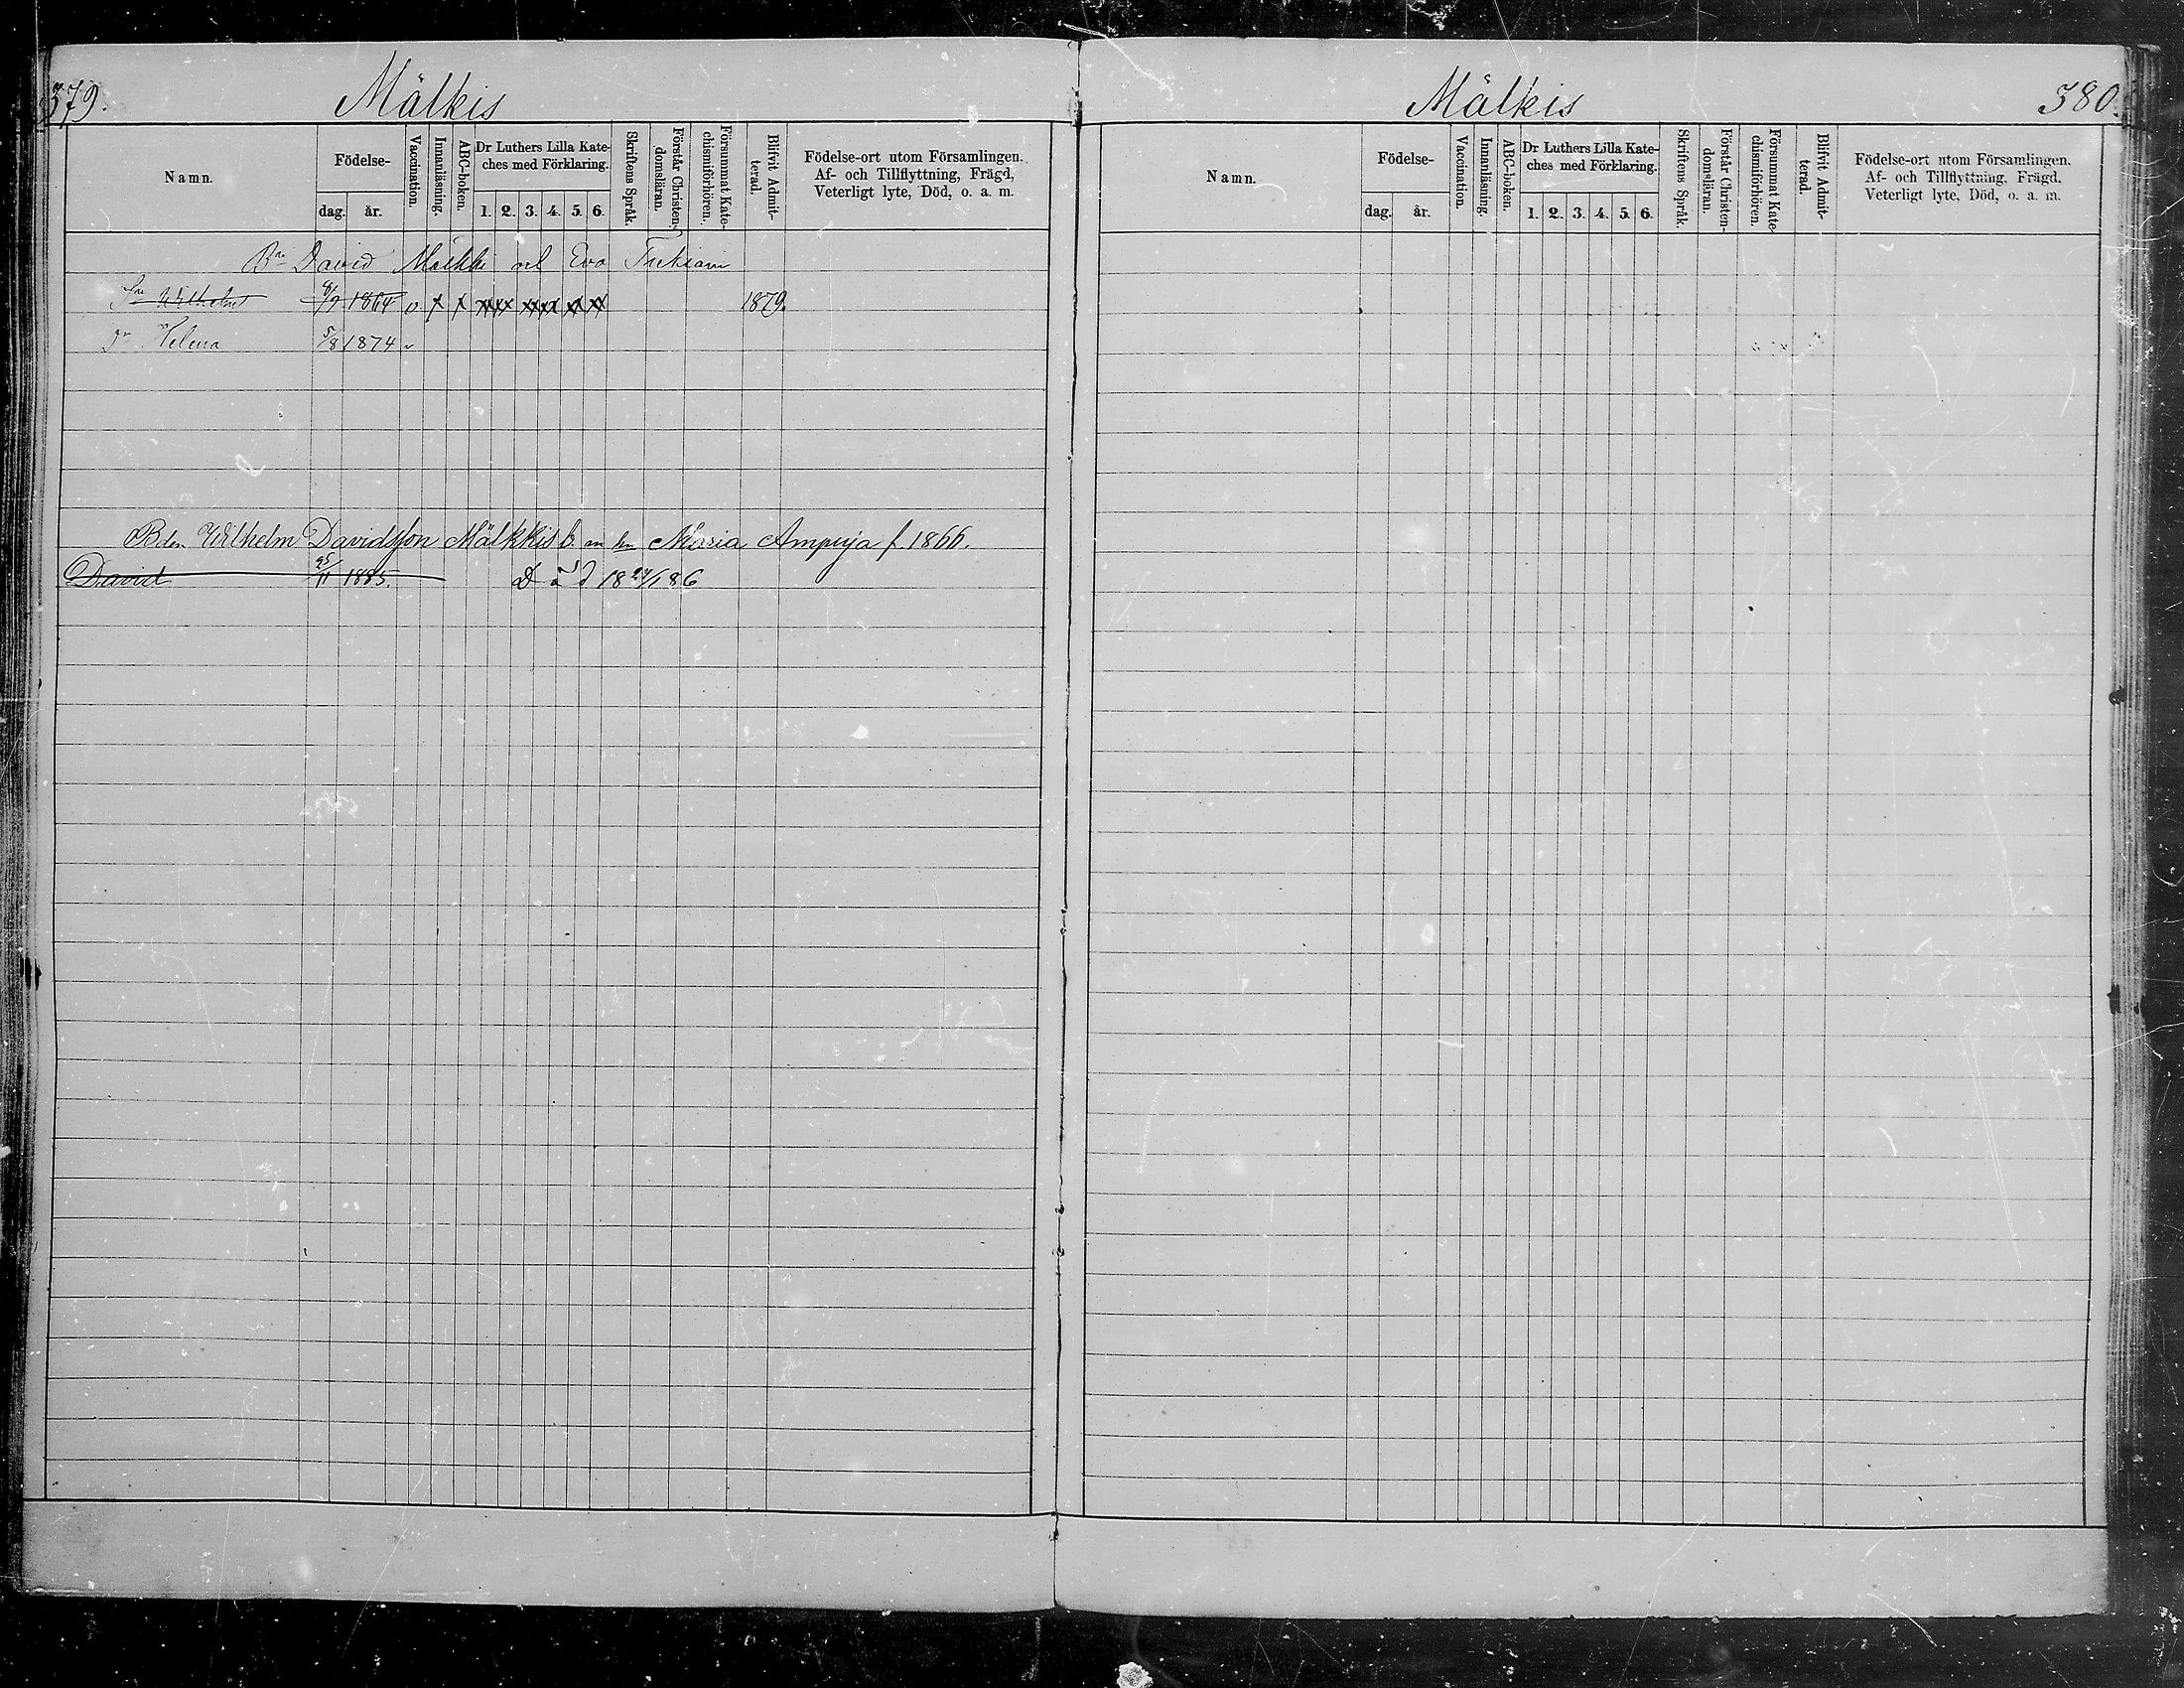 379.
Mälkis
Namn.
Födelse-
dag. år.
Vaccination.
Innanläsning.
ABC-boken.
Dr Luthers Lilla Kate-
ches med Förklaring.
1. 2. 3. 4. 5. 6.
Skriftens Språk.
Förstår Christen-
domsläran.
Försummat Kate-
chismiförhören.
Blifvit Admit-
terad.
Födelse-ort utom Församlingen.
Af- och Tillflyttning, Frägd,
Veterligt lyte, Död, o. a. m.
Bn David Mälkki och Eva
Sn Wilhelm 1864 v x x 1879.
Dr Helena 5/8 1874 v
Bden Wilhelm Davidsson Mälkkis b. Maria Ampuja f. 1866.
David 25/11 1885. Död 18 24/1 86
Mälkis
380.
Namn.
Födelse-
dag. år.
Vaccination.
Innanläsning.
ABC-boken.
Dr Luthers Lilla Kate-
ches med Förklaring.
1. 2. 3. 4. 5. 6.
Skriftens Språk.
Förstår Christen-
domsläran.
Försummat Kate-
chismiförhören.
Blifvit Admit-
terad.
Födelse-ort utom Församlingen.
Af- och Tillflyttning, Frägd,
Veterligt lyte, Död, o. a. m.